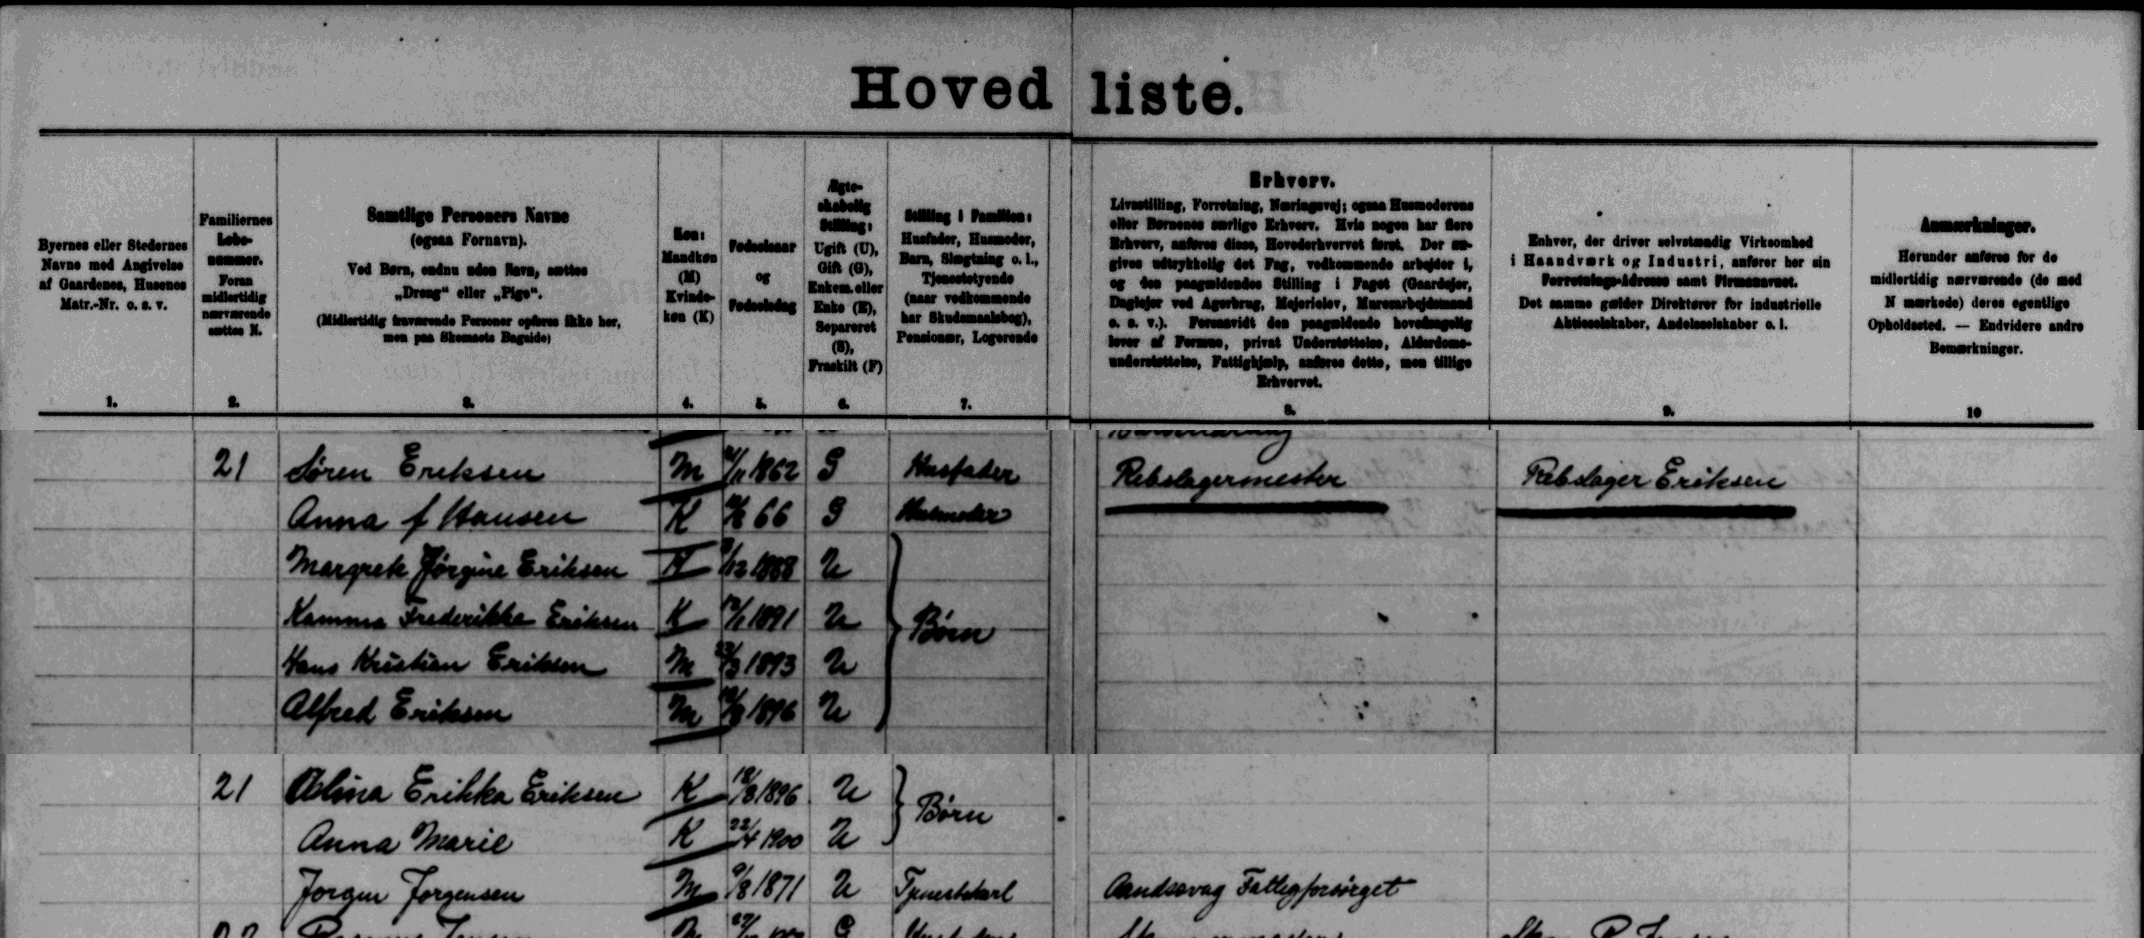 Hovedliste.
Byernes eller Stedernes Navne med Angivelse af Gaardenes, Husenes Matr.-Nr. o. s. v.
1.
Familiernes Løbenummer.
Foran midlertidig nærværende sættes N.
2.
Samtlige Personers Navne
(ogsaa Fornavn).
Ved Børn, endnu uden Navn, sættes „Dreng“ eller „Pige“.
(Midlertidig fraværende Personer opføres ikke her, men paa Skemaets Bagside)
3.
Køn:
Mandkøn (M) Kvindekøn (K)
4.
Fødselsaar og Fødselsdag
5.
Ægteskabelig Stilling:
Ugift (U), Gift (G), Enkem. eller Enke (E), Separeret (S), Fraskilt (F)
6.
Stilling i Familien:
Husfader, Husmoder, Barn, Slægtning o. l., Tjenestetyende (naar vedkommende har Skudsmaalsbog), Pensionær, Logerende
7.
Erhverv.
Livsstilling, Forretning, Næringsvej; ogsaa Husmoderens
eller Børnenes særlige Erhverv. Hvis nogen har flere
Erhverv, anføres disse, Hovederhvervet først. Der angives
udtrykkelig det Fag, vedkommende arbejder i,
og den paagældendes Stilling i Faget (Gaardejer,
Daglejer ved Agerbrug, Mejerielev, Murerarbejdsmand
o. s. v.). Forsaavidt den paagældende hovedsagelig
lever af Formue, privat Understøttelse, Alderdomsunderstøttelse,
Fattighjælp, anføres dette, men tillige
Erhvervet.
8.
Enhver, der driver selvstændig Virksomhed
i Haandværk og Industri, anfører her sin
Forretnings-Adresse samt Firmanavnet.
Det samme gælder Direktører for industrielle
Aktieselskaber, Andelsselskaber o. l.
9.
Anmærkninger.
Herunder anføres for de
midlertidig nærværende (de med
N mærkede) deres egentlige
Opholdssted. — Endvidere andre
Bemærkninger.
10
21 Søren Eriksen M /11 1862 G Husfader Rebslagermester Rebslager Eriksen
Anna f Hansen K 66 G Husmoder
Margrete Jørgine Eriksen K /12 1888 U
Kamma Frederikke Eriksen K 1891 U Børn
Hans Kristian Eriksen M 23/3 1893 U
Alfred Eriksen M 18/8 1896 U
21 Alvina Erikka Eriksen K 18/8 1896 U Børn
Anna Marie K 22/4 1900 U
Jørgen Jørgensen M 9/8 1871 U Tjenestekarl Aandssvag Fattigforsørget